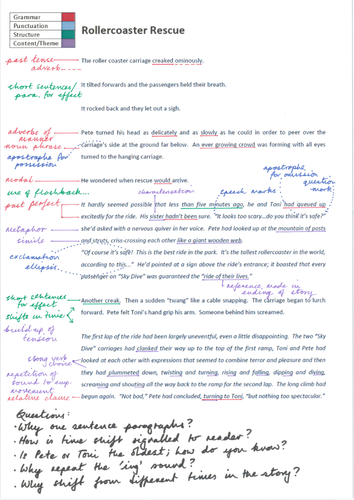 Grammar
Punctuation
Structure
Content/Theme
Rollercoaster Rescue
past tense
adverb
The roller coaster carriage creaked ominously.
short sentences/
para. for effect
It tilted forwards and the passengers held their breath.
It rocked back and they let out a sigh.
adverbs of
manner
noun phrase
apostrophe for
possession
Pete turned his head as delicately and as slowly as he could in order to peer over the
carriage's side at the ground far below. An ever growing crowd was forming with all eyes
turned to the hanging carriage.
apostrophe
for omission
question
mark
modal
He wondered when rescue would arrive.
use of flashback...
characterisation
speech marks
past perfect
It hardly seemed possible that less than five minutes ago, he and Toni had queued up
excitedly for the ride. His sister hadn't been sure. "It looks too scary...do you think it's safe?"
metaphor
simile
she'd asked with a nervous quiver in her voice. Pete had looked at the mountain of posts
and struts, criss-crossing each other like a giant wooden web.
exclamation
ellipsis
"Of course it's safe! This is the best ride in the park. It's the tallest rollercoaster in the world,
according to this..." He'd pointed at a sign above the ride's entrance; it boasted that every
passenger on "Sky Dive" was guaranteed the "ride of their lives."
reference made in
ending of story
short sentences
for effect
shifts in time
Another creak. Then a sudden "twang" like a cable snapping. The carriage began to lurch
forward. Pete felt Toni's hand grip his arm. Someone behind him screamed.
build up of
tension
The first lap of the ride had been largely uneventful, even a little disappointing. The two "Sky
strong verb
choice
Dive" carriages had clanked their way up to the top of the first ramp, Toni and Pete had
looked at each other with expressions that seemed to combine terror and pleasure and then
repetition of
sound to
movement
they had plummeted down, twisting and turning, rising and falling, dipping and diving,
screaming and shouting all the way back to the ramp for the second lap. The long climb had
relative clause
begun again. "Not bad," Pete had concluded, turning to Toni, "but nothing so spectacular."
Questions:
• Why one sentence paragraphs?
• How is time shift signalled to reader?
• Is Pete or Toni the oldest; how do you know?
• Why repeat the 'ing' sound?
• Why shift from different times in the story?